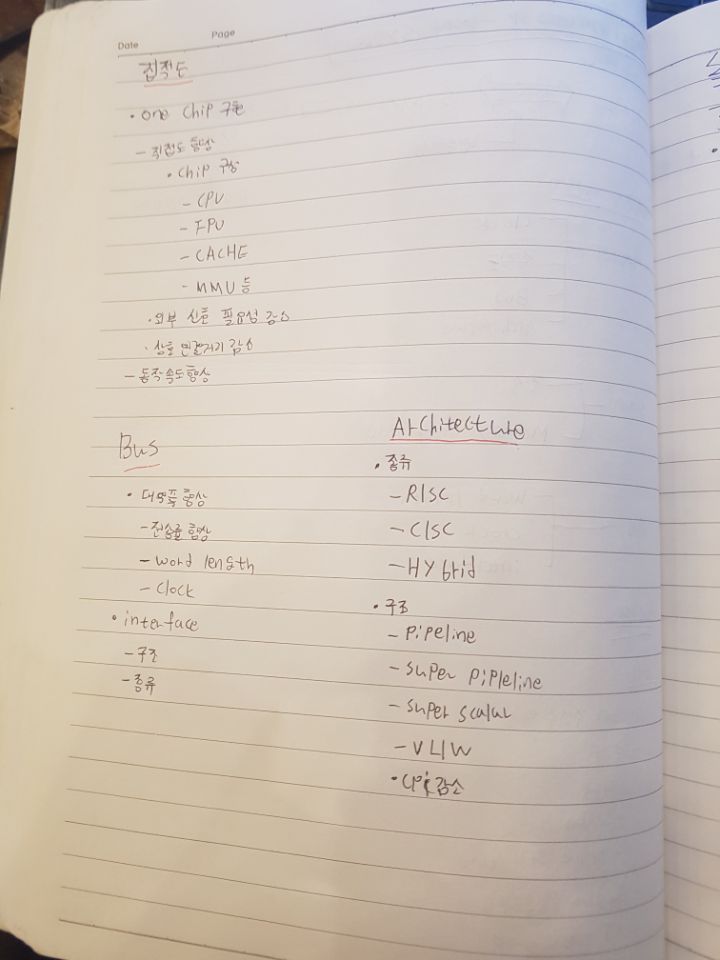 Date Page
집적도
• one chip 구현
- 직접도 향상
• chip 구성
- CPU
- FPU
- CACHE
- MMU 등
• 외부 신호 필요성 감소
• 상호 연결거리 감소
- 동작속도향상
Bus
• 대역폭 향상
- 전송률 향상
- word length
- clock
• interface
- 구조
- 종류
Architecture
• 종류
- RISC
- CISC
- HYbrid
• 구조
- pipeline
- super pipleline
- super scalar
- VLIW
• CPI 감소